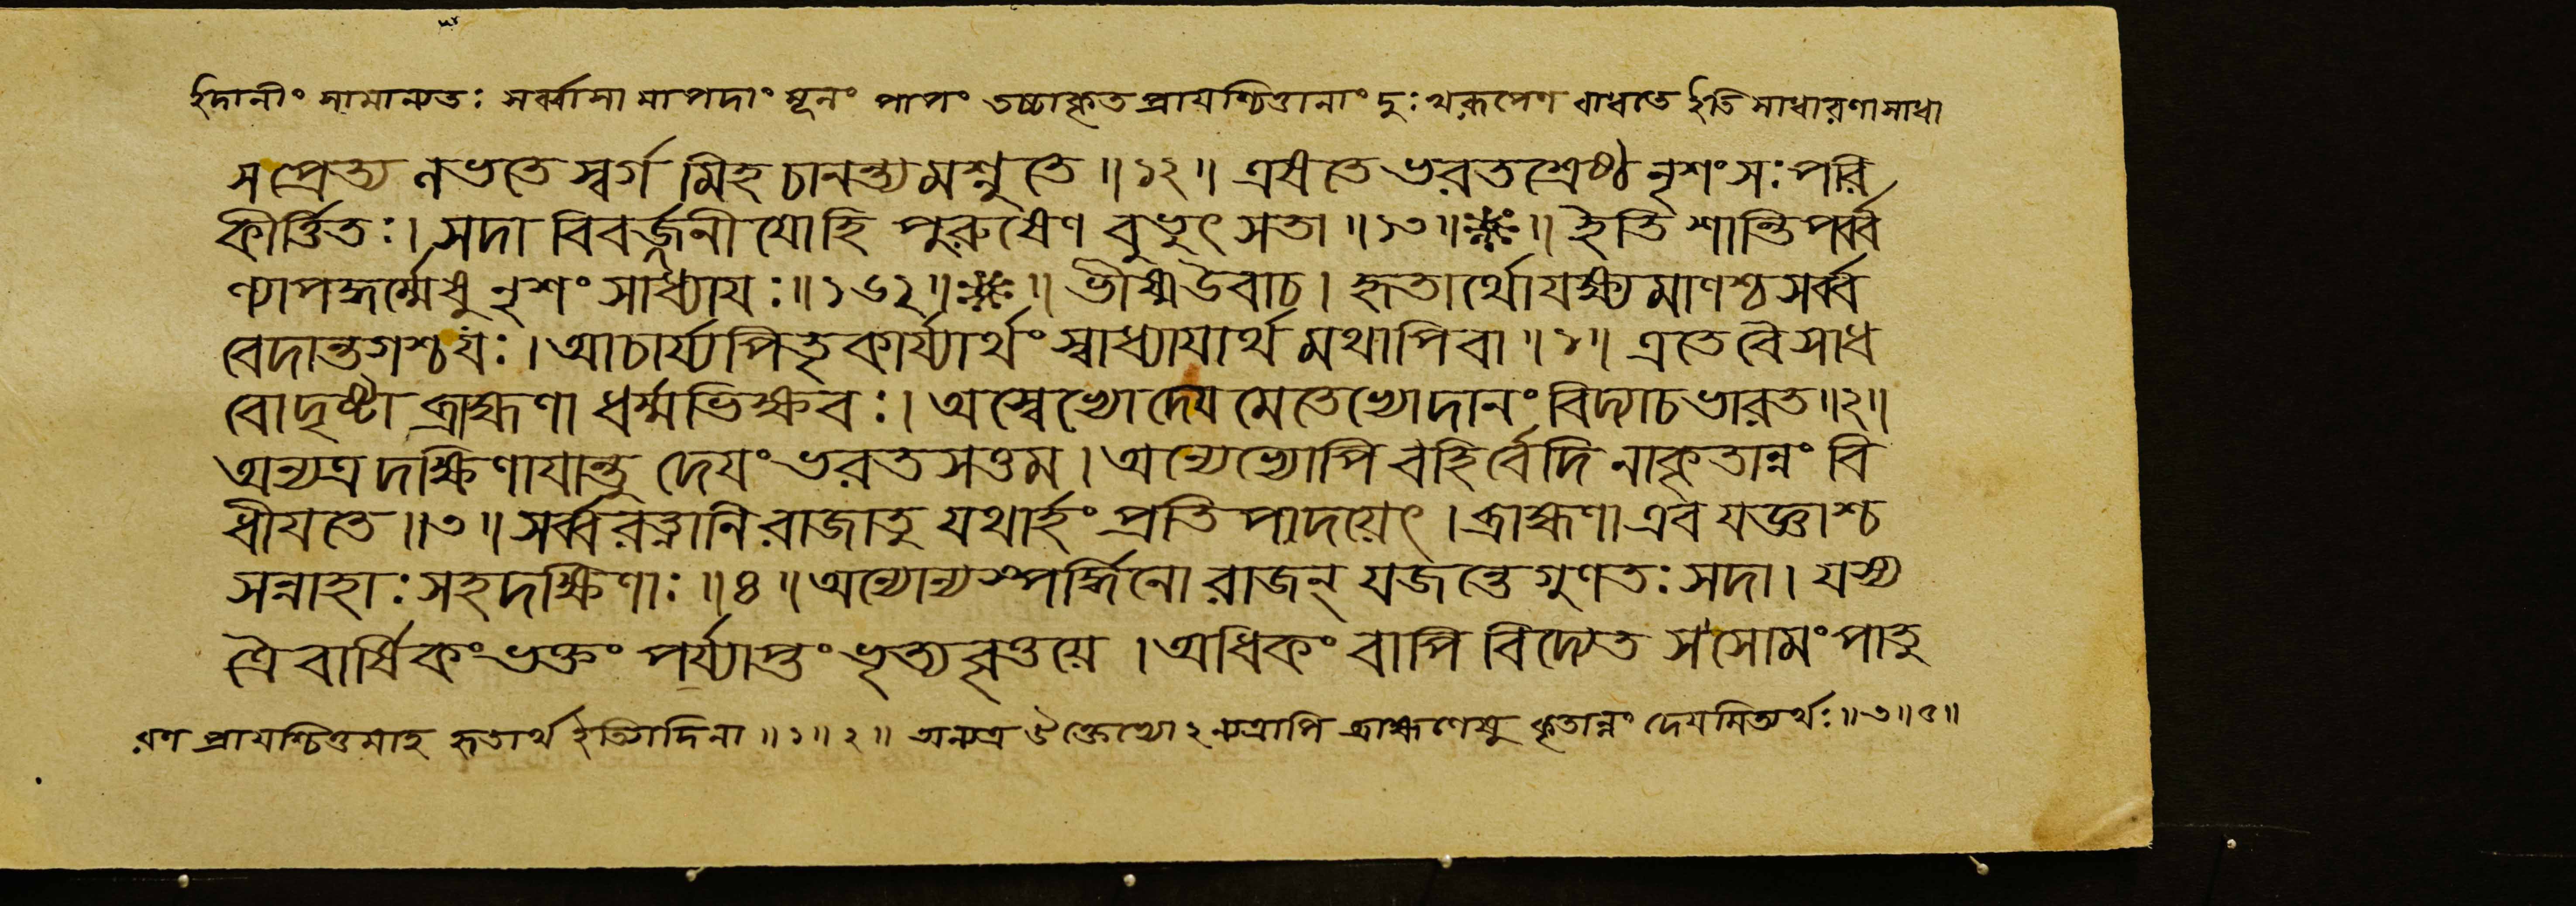 ইদানীং সামান্যতঃ সর্ব্বাসামাপদাং মূলং পাপং তচ্চাকৃতপ্রায়শ্চিত্তানাং দুঃখরূপেণ বাধতে ইতি সাধারণাসাধা
স প্রেত্য লভতে স্বর্গমিহ চানন্ত্যমশ্নুতে ॥ ১২ ॥ এষ তে ভরতশ্রেষ্ঠ নৃশংসঃ পরি
কীর্ত্তিতঃ । সদা বিবর্জ্জনীযো হি পুরুষেণ বুভুৎসতা ॥ ১৩ ॥ ※ ॥ ইতি শান্তিপর্ব্ব
ণ্যাপদ্ধর্ম্মেষু নৃশংসাধ্যাযঃ ॥ ১৬২ ॥ ※ ॥ ভীষ্ম উবাচ । হৃতার্থো যক্ষ্যমাণশ্চ সর্ব্ব
বেদান্তগশ্চ যঃ । আচার্য্যপিতৃকার্য্যার্থং স্বাধ্যাযার্থমথাপি বা ॥ ১ ॥ এতে বৈ সাধ
বো দৃষ্টা ব্রাহ্মণা ধর্ম্মভিক্ষবঃ । অস্বেভ্যো দেযমেতেভ্যো দানং বিদ্যা চ ভারত ॥ ২ ॥
অন্যত্র দক্ষিণাযান্তু দেযং ভরতসত্তম । অন্যেভ্যোপি বহির্বেদি নাকৃতান্নং বি
ধীযতে ॥ ৩ ॥ সর্ব্বরত্নানি রাজা তু যথার্হং প্রতিপাদয়েৎ । ব্রাহ্মণা এব যজ্ঞাশ্চ
সন্নাহাঃ সহদক্ষিণাঃ ॥ ৪ ॥ অন্যোন্যস্পর্দ্ধিনো রাজন্ যজন্তে গুণতঃ সদা । যস্য
ত্রৈবার্ষিকং ভক্তং পর্য্যাপ্তং ভৃত্যবৃত্তয়ে । অধিকং বাপি বিদ্যেত স সোমং পাতু
রণ প্রাযশ্চিত্তমাহ হৃতার্থ ইত্যাদিনা ॥ ১ ॥ ২ ॥ অন্যত্র উক্তেভ্যোঽন্যত্রাপি ব্রাহ্মণেষু কৃতান্নং দেযমিত্যর্থঃ ॥ ৩ ॥ ৫ ॥